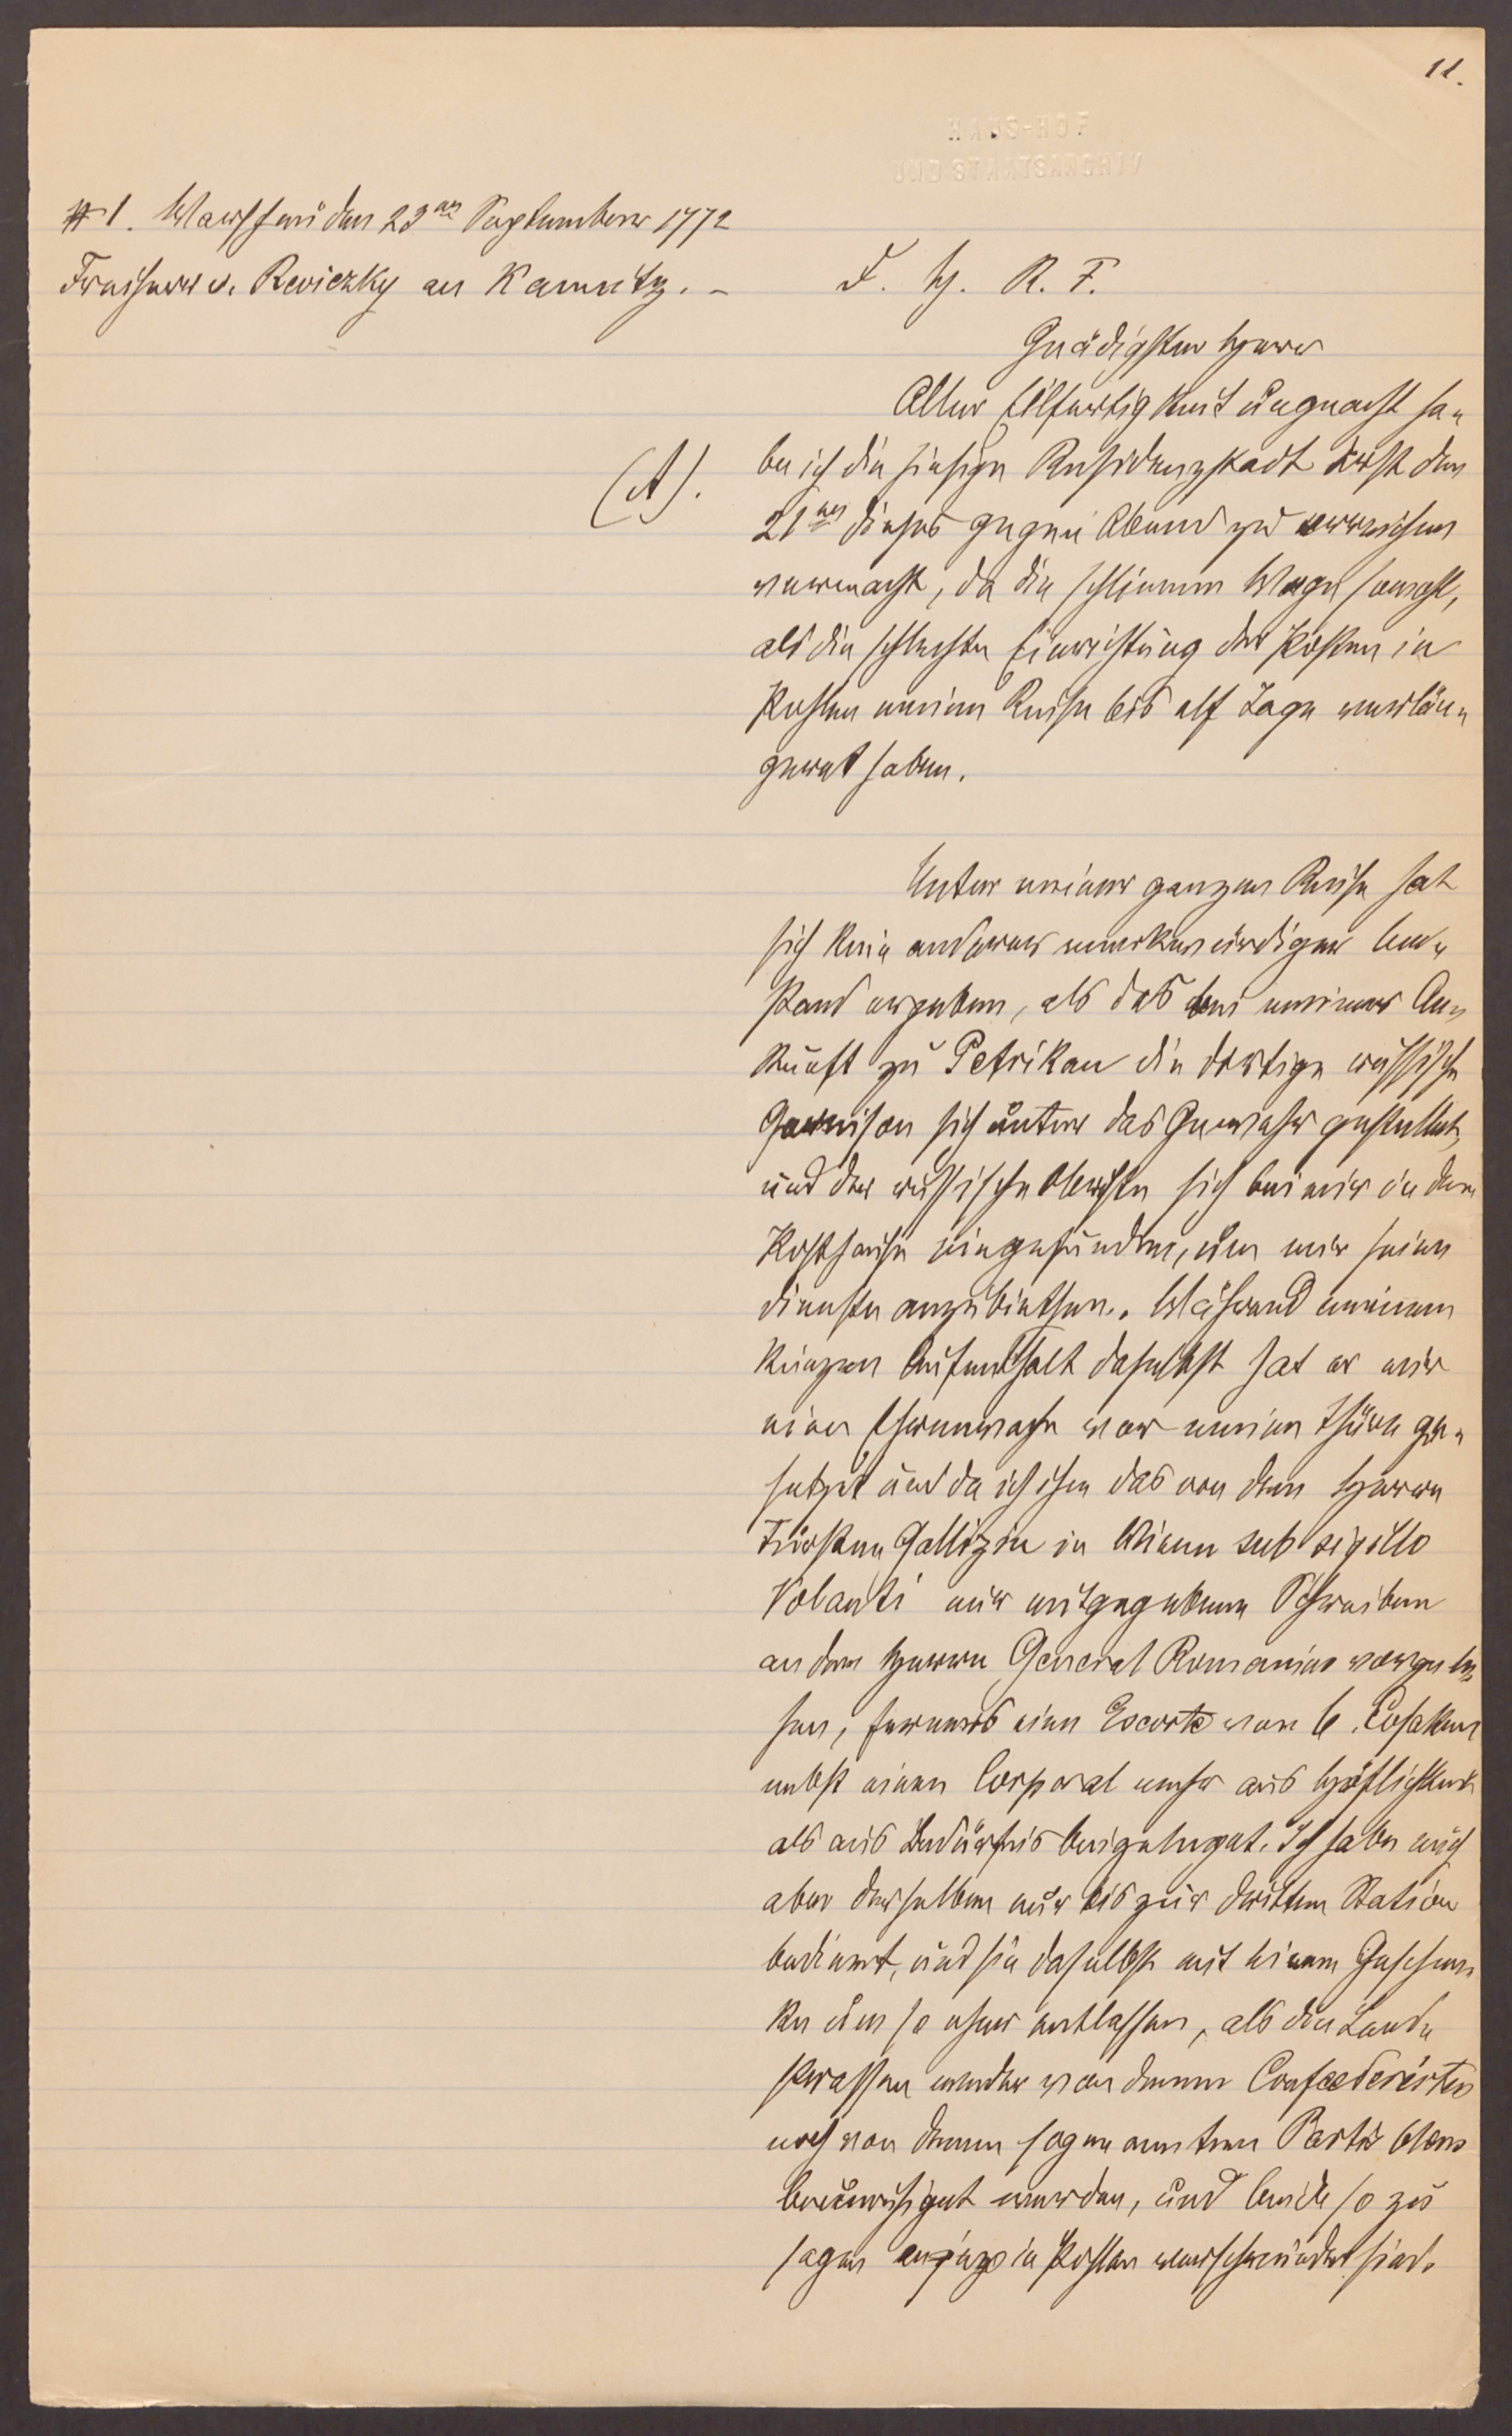 11.
HAUS-HOF
UND STAATSARCHIV
#1. Warschau den 23ten September 1772
Freiherr v. Reviczky an Kaunitz. –
F. H. R. F.
Gnädigster Herr
Aller Eilfertigkeit ungeacht ha-
(A).
be ich die hiesige Residenzstadt erst den
21ten dieses gegen Abend zu erreichen
vermacht, da die schlimme Wege sowohl,
als die schlechte Einrichtung der Posten in
Pohlen meine Reise bis elf Tage verlän-
gert haben.
Unter meiner ganzen Reise hat
sich kein anderer merkwürdiger Um-
stand ergeben, als das bei meiner An-
kunft zu Petrikau die dortige russische
Garnison sich unter das Gewehr gestellet,
und der russische Obriste sich bei mir in dem
Posthause eingefunden, um mir seine
Dienste anzubiethen. Während meinem
kurzen Aufenthalt daselbst hat er mir
eine Ehrenwache vor meine Thüre ge-
setzet und da ich ihm das von dem Herrn
Fürsten Gallizin in Wienn sub sigillo
Volanti mir mitgegebene Schreiben
an den Herrn General Romanius vorgewie-
sen, ferners eine Escorte von 6 Cosaken
nebst einem Corporal mehr aus Höflichkeit
als aus Bedürfnis beigeleget. Ich habe mich
aber derselben nur bis zur dritten Station
bedient, und sie daselbst mit einem Geschen-
ke um so eher entlassen, als die Land-
strassen weder von denen Confoederirten
noch von denen sogenannten Partis bleus
beunruhiget werden, und beide so zu
sagen in Pohlen verschwunden sind.